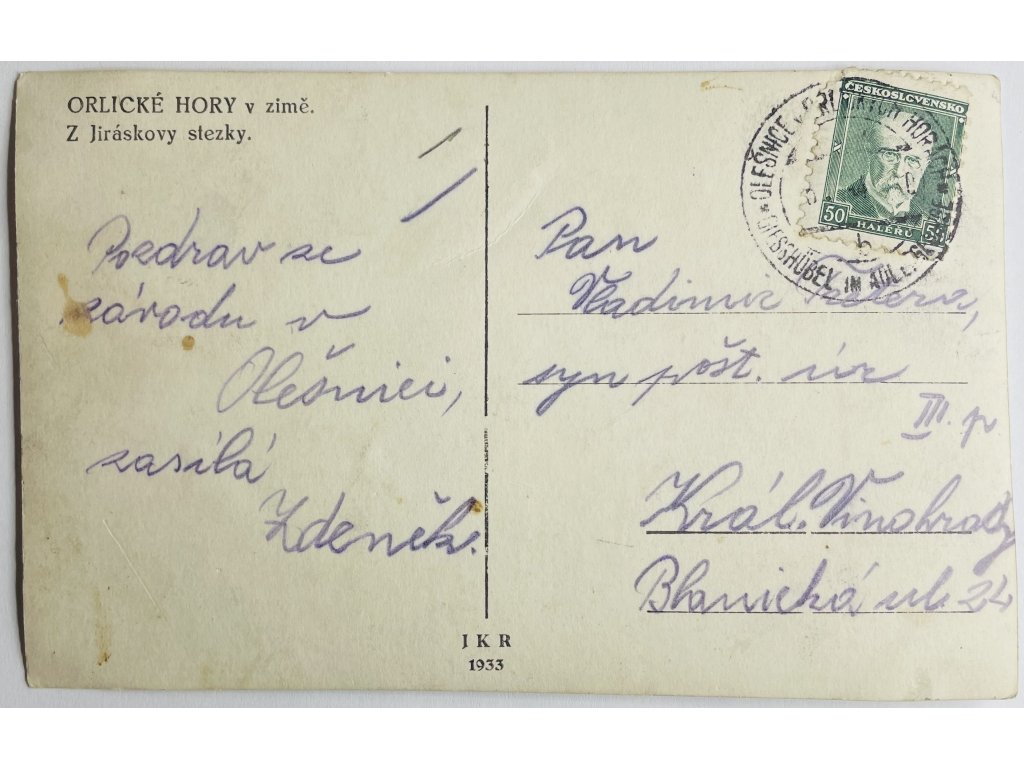 ORLICKÉ HORY v zimě.
Z Jiráskovy stezky.
Pozdrav se
závodu v
Olešnici,
zasílá
Zdeněk.
J K R
1933
ČESKOSLOVENSKO
50
HALÉŘŮ
50
OLEŠNICE V ORLICKÝCH HORÁCH
GIESSHÜBEL IM ADLERGEBIRGE
Pan
Vladimír
syn pošt. úř
III. p
Král. Vinohrady
Blanická ul. 24